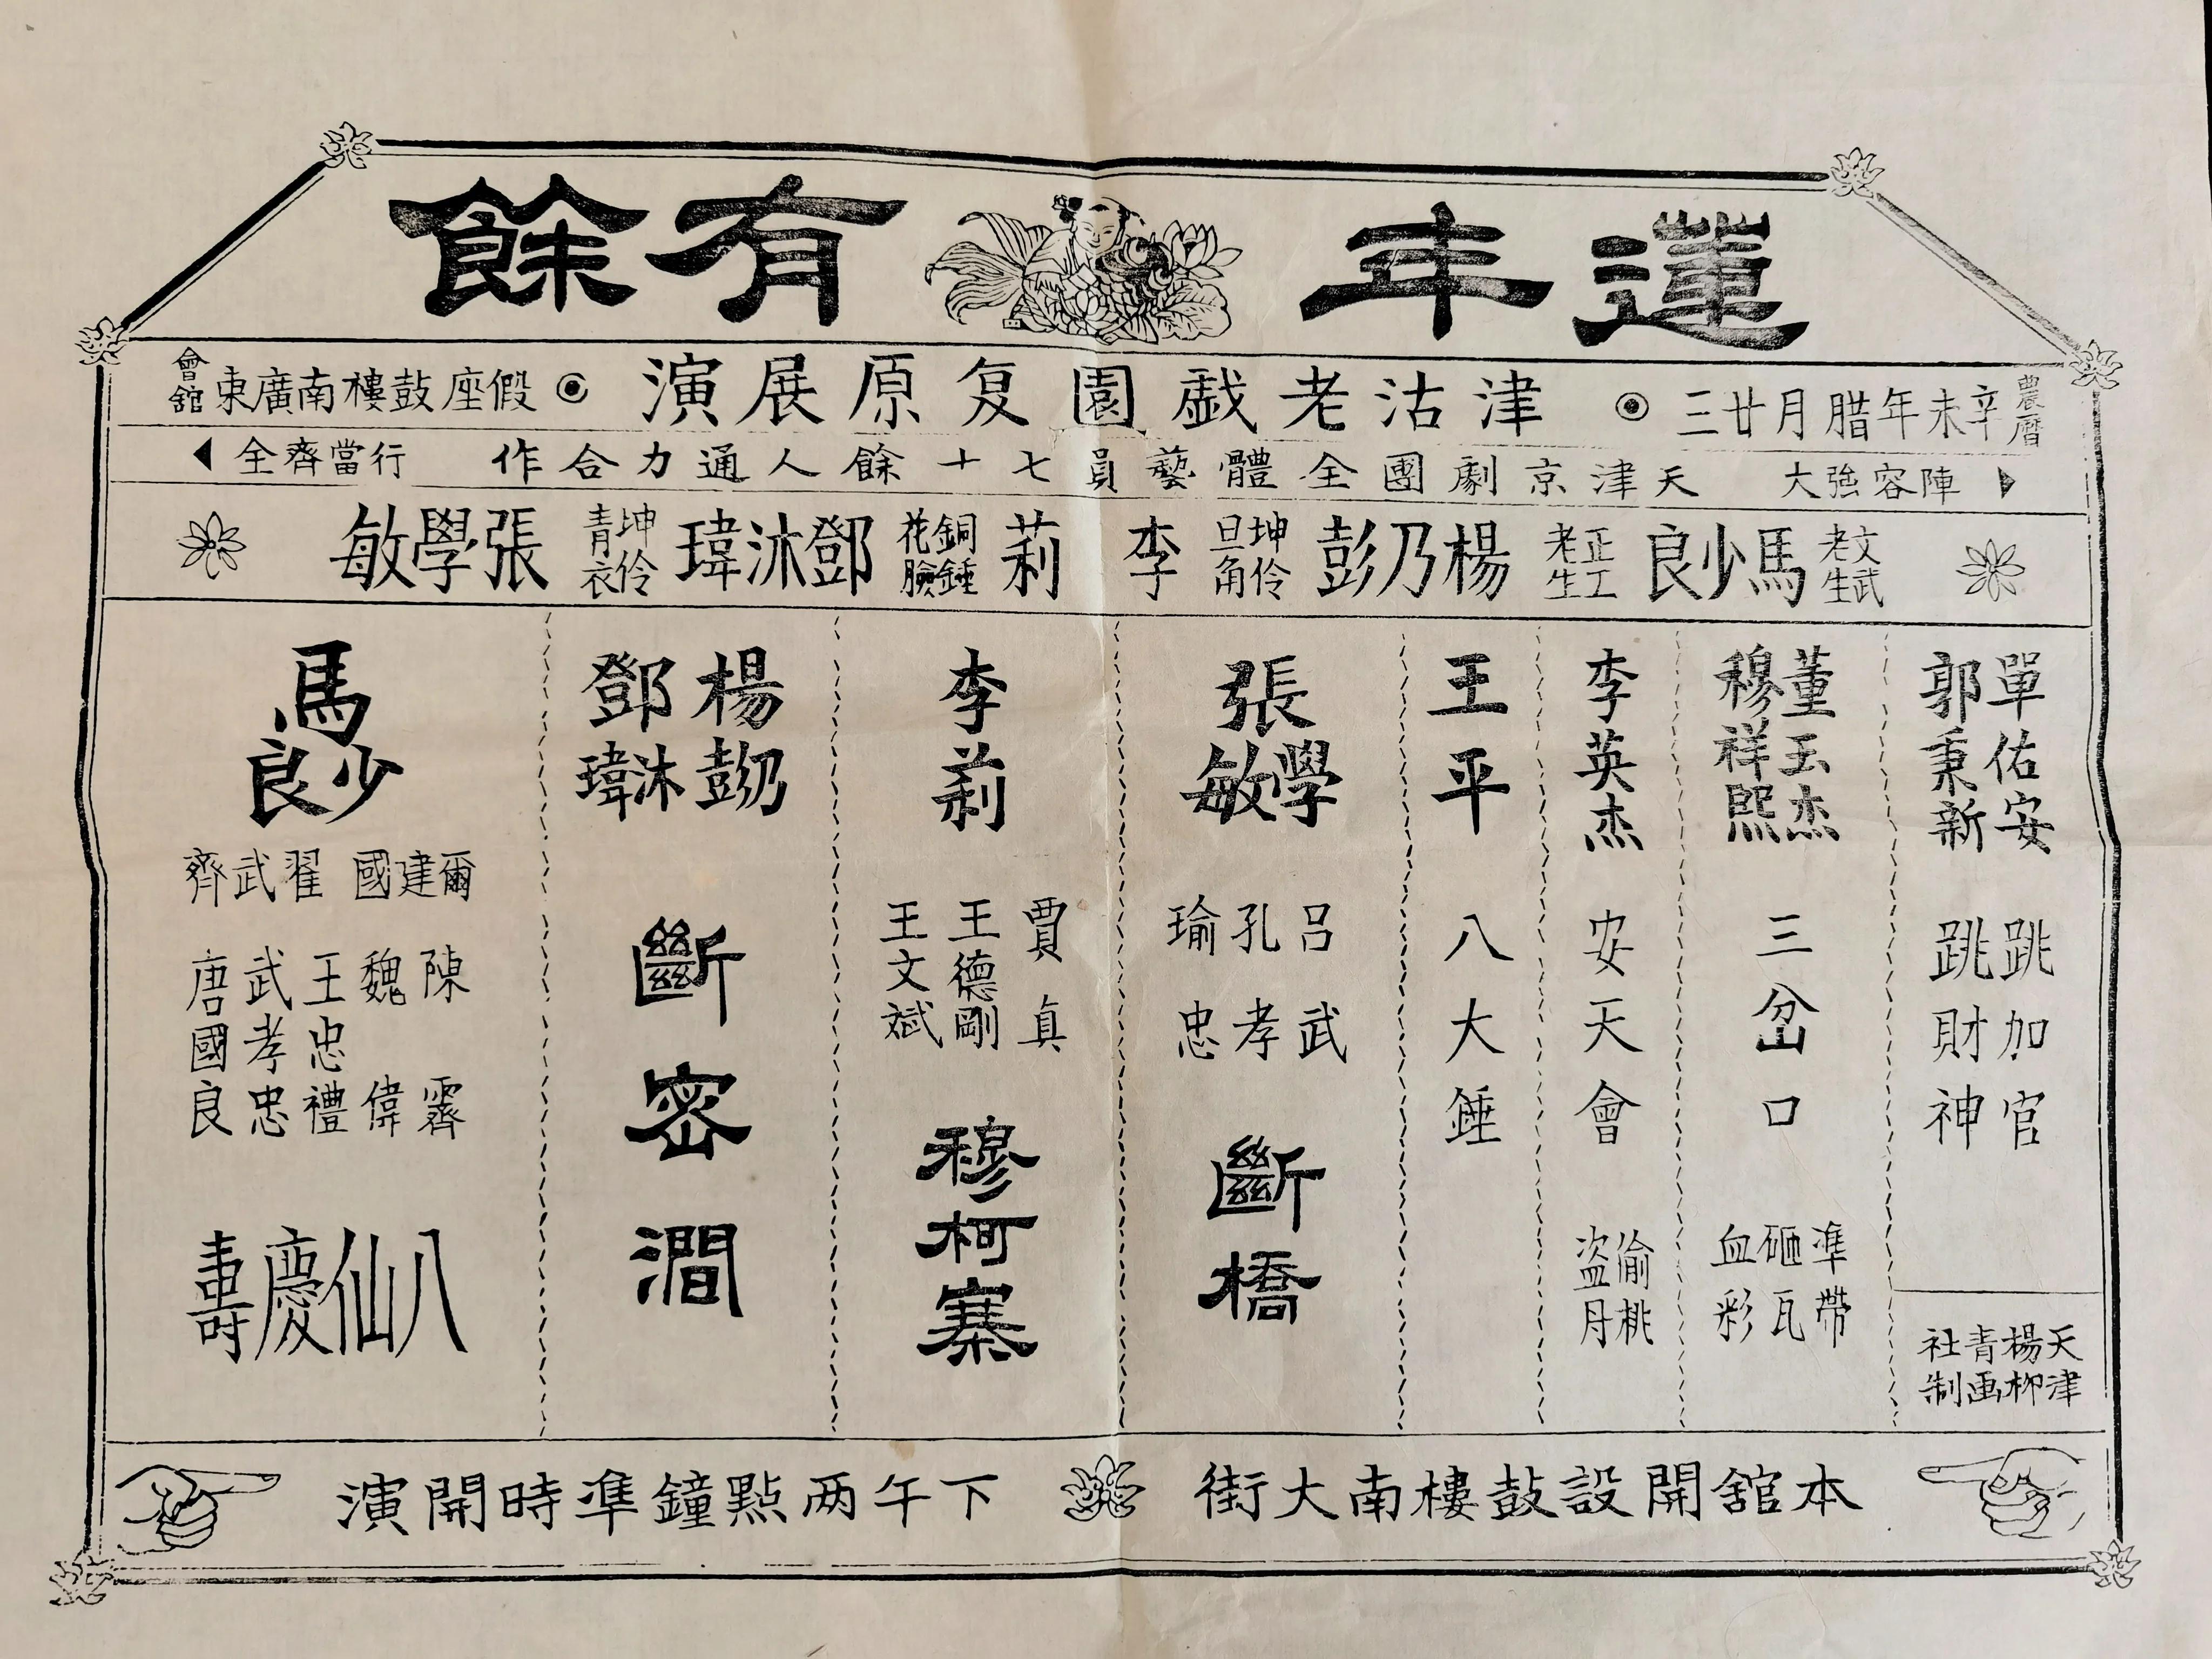 蓮年有餘
農曆辛未年腊月廿三 津沽老戯園复原展演 假座鼓樓南廣東會舘
陣容強大 天津京劇團全體藝員七十餘人通力合作 行當齊全
文武老生 馬少良 正工老生 楊乃彭 坤伶旦角 李莉 銅錘花臉 鄧沐瑋 坤伶青衣 張學敏
單佑安 郭秉新
跳加官 跳財神
天津楊柳青画社制
董玉杰 穆祥熙
三岔口
準帶砸瓦血彩
李英杰
安天會
偷桃盗丹
王平
八大錘
張學敏
吕武 孔孝 瑜忠
斷橋
李莉
賈真 王德剛 王文斌
穆柯寨
楊乃彭 鄧沐瑋
斷密澗
馬少良
爾建國 翟武齊
陳霽 魏偉 王忠禮 武孝忠 唐國良
八仙慶壽
本舘開設鼓樓南大街 下午两點鐘準時開演